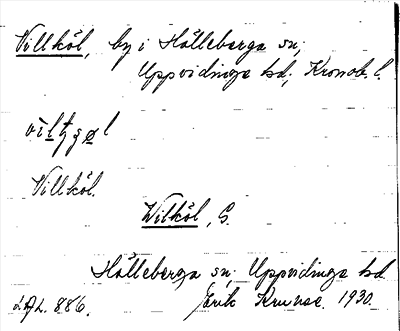 Villköl, by i Hälleberga sn,
Uppvidinge hd, Kronob. l.
Villköl.
Wilköl, G.
Hälleberga sn, Uppvidinge hd
Erik Kruuse. 1930.